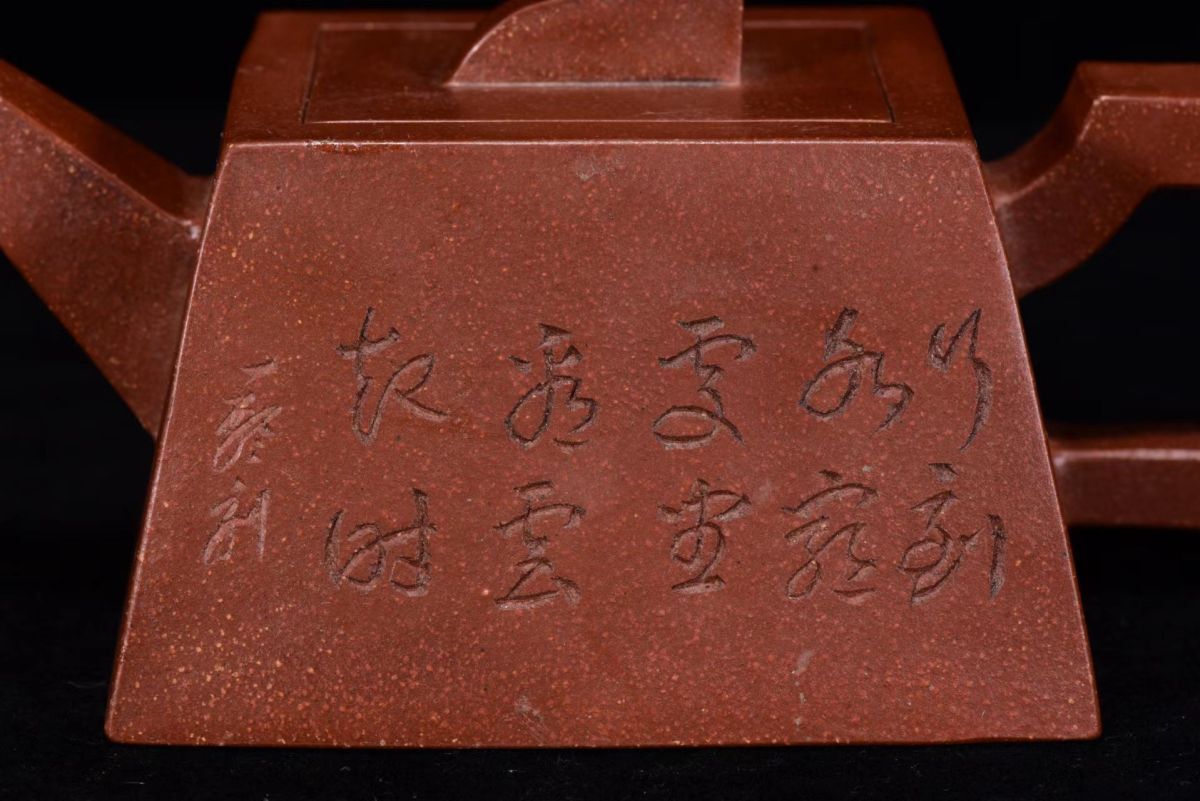 行到
水窮
處坐
看雲
起時
一癡刻